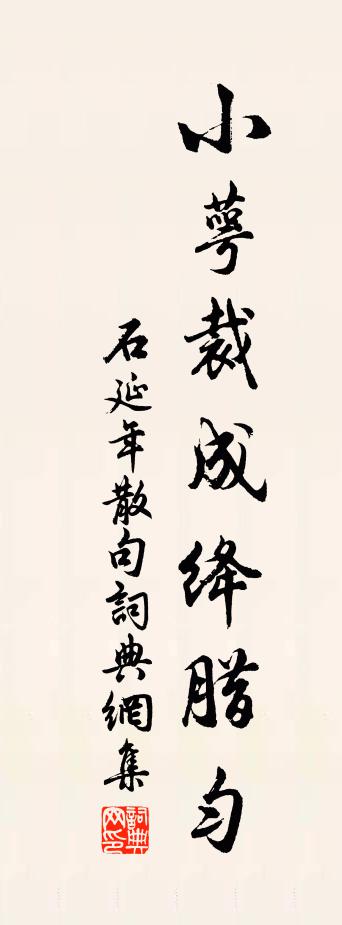 小萼裁成绛腊匀
石延年散句詞典網集
詞典
网印